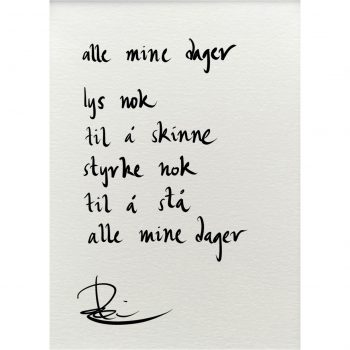 alle mine dager
lys nok
til á skinne
styrke nok
til á stá
alle mine dager